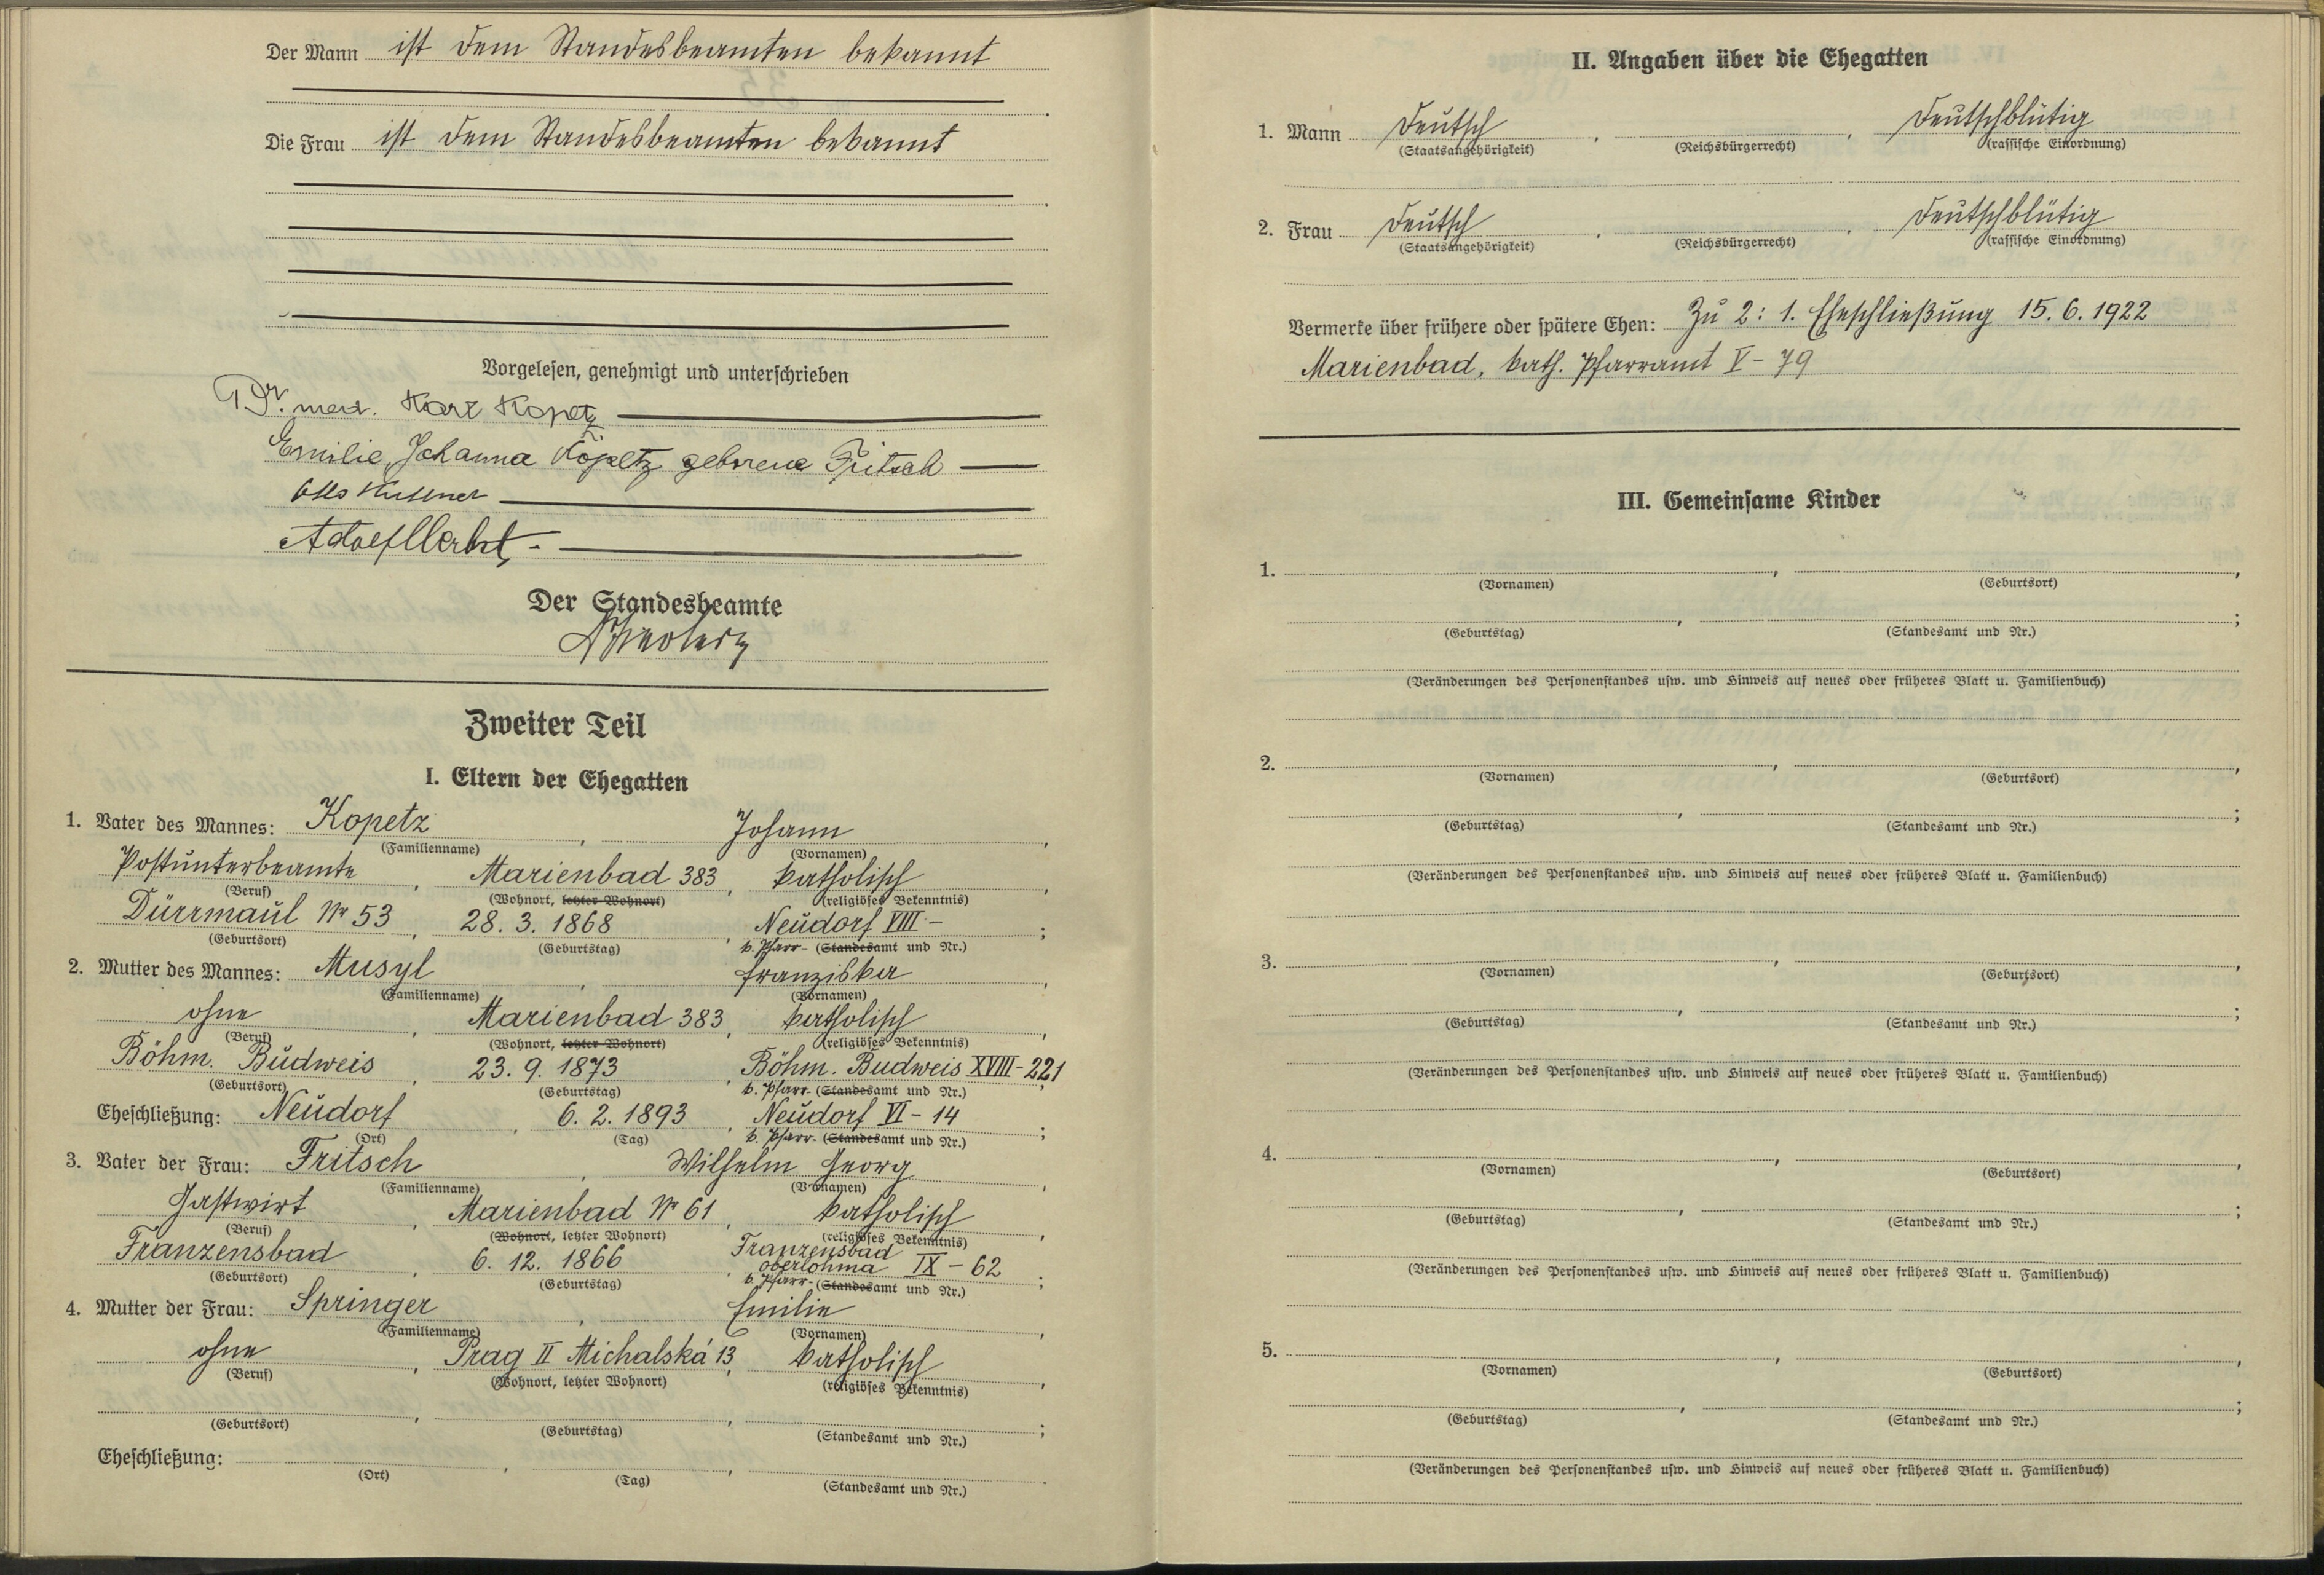 Der Mann ist dem Standesbeamten bekannt
Die Frau ist dem Standesbeamten bekannt
Vorgelesen, genehmigt und unterschrieben
Dr. med. Karl Kopetz
Emilie Johanna Kopetz geborene Fritsch
Otto
Adolf
Der Standesbeamte
Zweiter Teil
I. Eltern der Ehegatten
1. Vater des Mannes: Kopetz, Johann,
(Familienname) (Vornamen)
Postunterbeamte, Marienbad 383, katholisch,
(Beruf) (Wohnort, letzter Wohnort) (religiöses Bekenntnis)
Dürrmaul Nr 53, 28. 3. 1868, Neudorf VIII -;
(Geburtsort) (Geburtstag) k. Pfarr- (Standesamt und Nr.)
2. Mutter des Mannes: Musyl, Franziska,
(Familienname) (Vornamen)
ohne, Marienbad 383, katholisch,
(Beruf) (Wohnort, letzter Wohnort) (religiöses Bekenntnis)
Böhm. Budweis, 23. 9. 1873, Böhm. Budweis XVIII - 221;
(Geburtsort) (Geburtstag) k. Pfarr- (Standesamt und Nr.)
Eheschließung: Neudorf, 6. 2. 1893, Neudorf VI - 14;
(Ort) (Tag) k. Pfarr- (Standesamt und Nr.)
3. Vater der Frau: Fritsch, Wilhelm Georg,
(Familienname) (Vornamen)
Gastwirt, Marienbad Nr 61, katholisch,
(Beruf) (Wohnort, letzter Wohnort) (religiöses Bekenntnis)
Franzensbad, 6. 12. 1866, Franzensbad
oberlohma IX - 62;
(Geburtsort) (Geburtstag) k. Pfarr- (Standesamt und Nr.)
4. Mutter der Frau: Springer, Emilie,
(Familienname) (Vornamen)
ohne, Prag II Michalská 13, katholisch,
(Beruf) (Wohnort, letzter Wohnort) (religiöses Bekenntnis)
(Geburtsort) (Geburtstag) (Standesamt und Nr.)
Eheschließung:
(Ort) (Tag) (Standesamt und Nr.)
II. Angaben über die Ehegatten
1. Mann Deutsch, , Deutschblütig
(Staatsangehörigkeit) (Reichsbürgerrecht) (rassische Einordnung)
2. Frau Deutsch, , Deutschblütig
(Staatsangehörigkeit) (Reichsbürgerrecht) (rassische Einordnung)
Vermerke über frühere oder spätere Ehen: Zu 2: 1. Eheschließung 15. 6. 1922
Marienbad, kath. Pfarramt V - 79
III. Gemeinsame Kinder
1.
(Vornamen) (Geburtsort)
(Geburtstag) (Standesamt und Nr.)
(Veränderungen des Personenstandes usw. und Hinweis auf neues oder früheres Blatt u. Familienbuch)
2.
(Vornamen) (Geburtsort)
(Geburtstag) (Standesamt und Nr.)
(Veränderungen des Personenstandes usw. und Hinweis auf neues oder früheres Blatt u. Familienbuch)
3.
(Vornamen) (Geburtsort)
(Geburtstag) (Standesamt und Nr.)
(Veränderungen des Personenstandes usw. und Hinweis auf neues oder früheres Blatt u. Familienbuch)
4.
(Vornamen) (Geburtsort)
(Geburtstag) (Standesamt und Nr.)
(Veränderungen des Personenstandes usw. und Hinweis auf neues oder früheres Blatt u. Familienbuch)
5.
(Vornamen) (Geburtsort)
(Geburtstag) (Standesamt und Nr.)
(Veränderungen des Personenstandes usw. und Hinweis auf neues oder früheres Blatt u. Familienbuch)